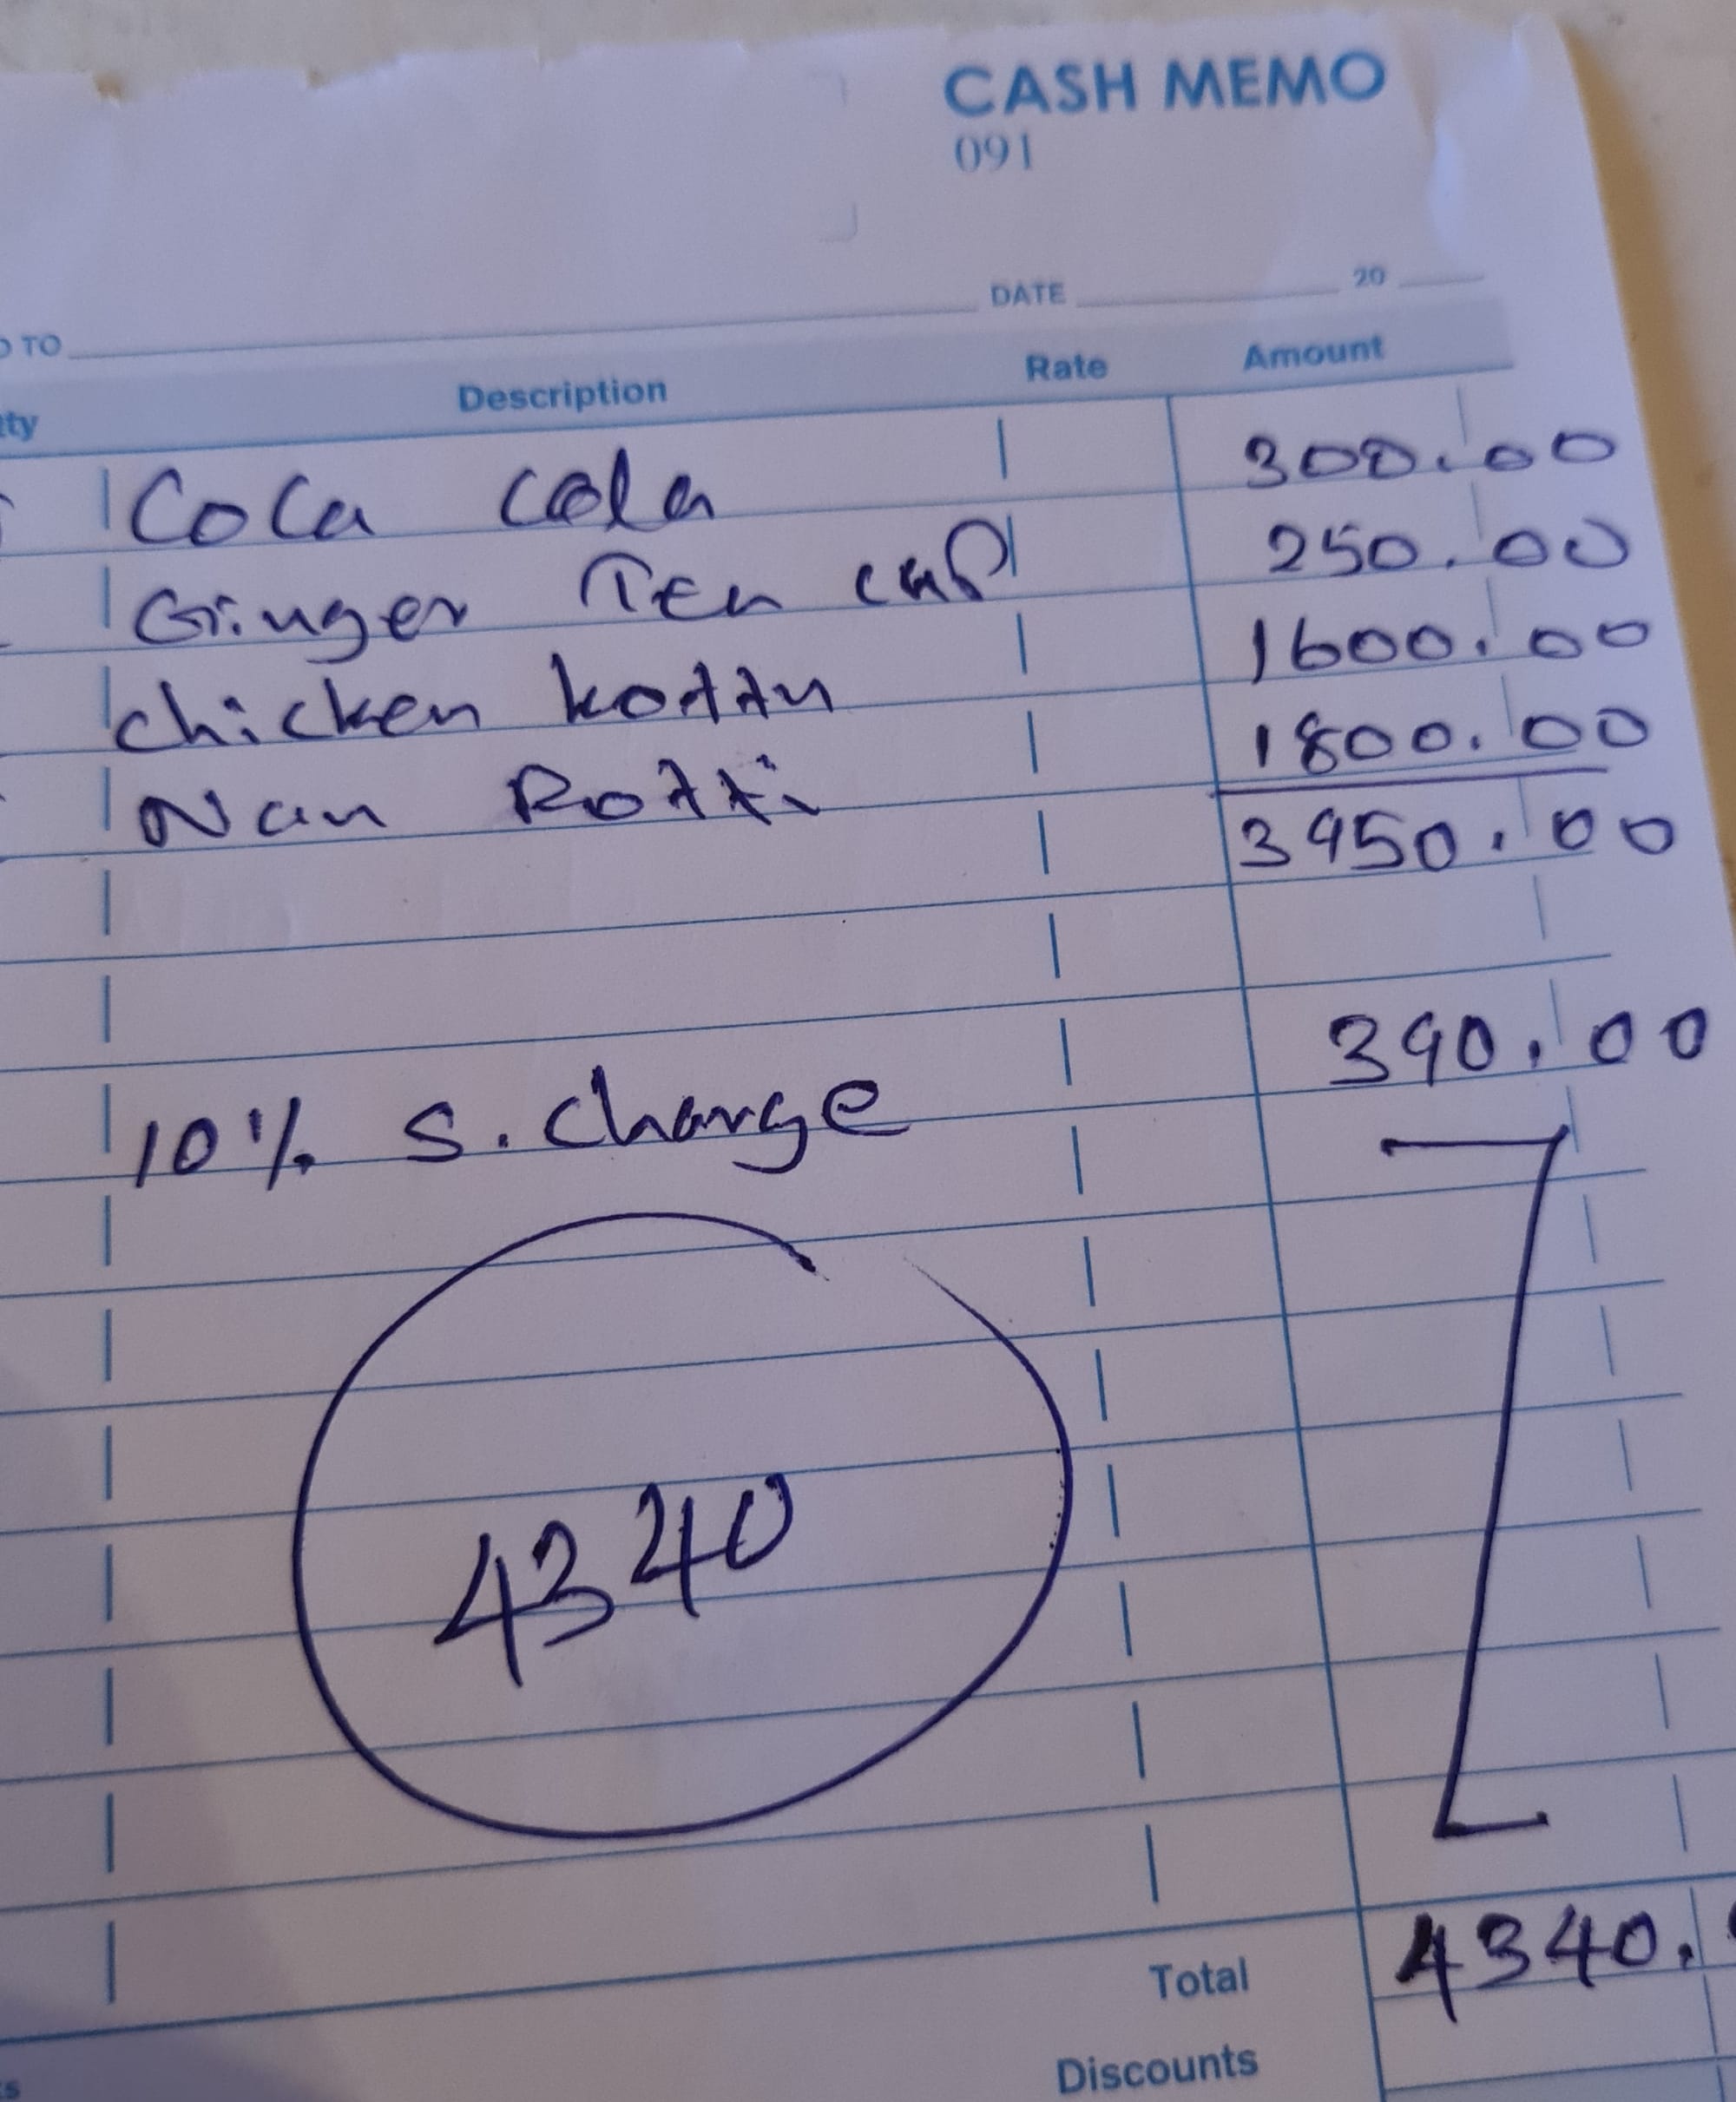 CASH MEMO
091
TO
DATE 20
ty Description Rate Amount
Coca cola 300.00
Ginger Tea cup 250.00
chicken kottu 1600.00
Nan Rotti 1800.00
3950.00
390.00
10% s. charge
4340
Total 4340.
Discounts